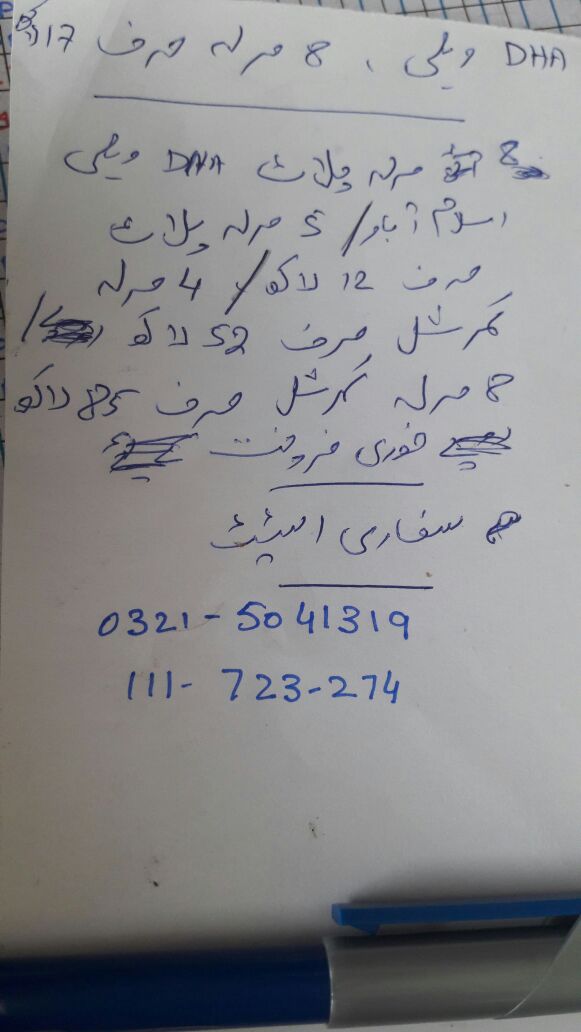 DHA ویلی، 8 مرلہ صرف 17
8 مرلہ پلاٹ DHA ویلی
اسلام آباد/ 5 مرلہ پلاٹ
صرف 12 لاکھ/ 4 مرلہ
کمرشل صرف 52 لاکھ /
8 مرلہ کمرشل صرف 85 لاکھ
فوری فروخت
سفاری اسٹیٹ
0321-5041319
111-723-274